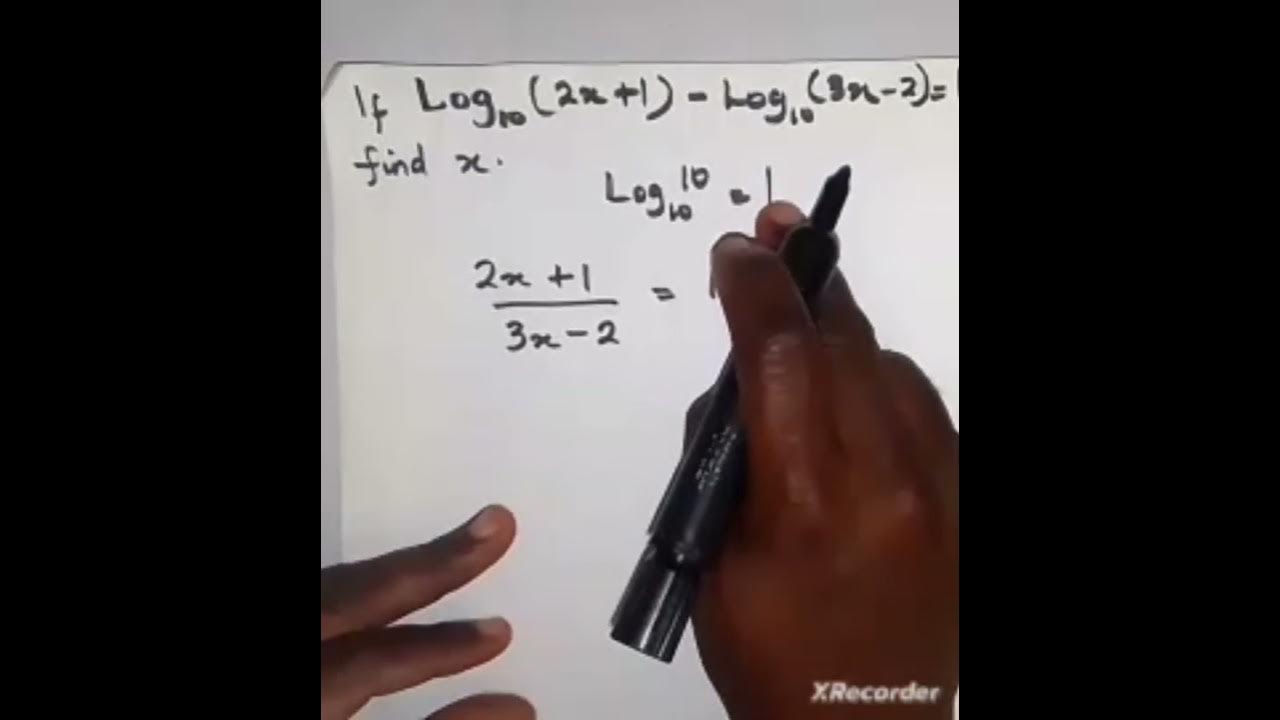 If Log₁₀(2x+1) - Log₁₀(3x-2)=1
find x.
Log₁₀ 10 = 1
2x +1
=
3x - 2
XRecorder